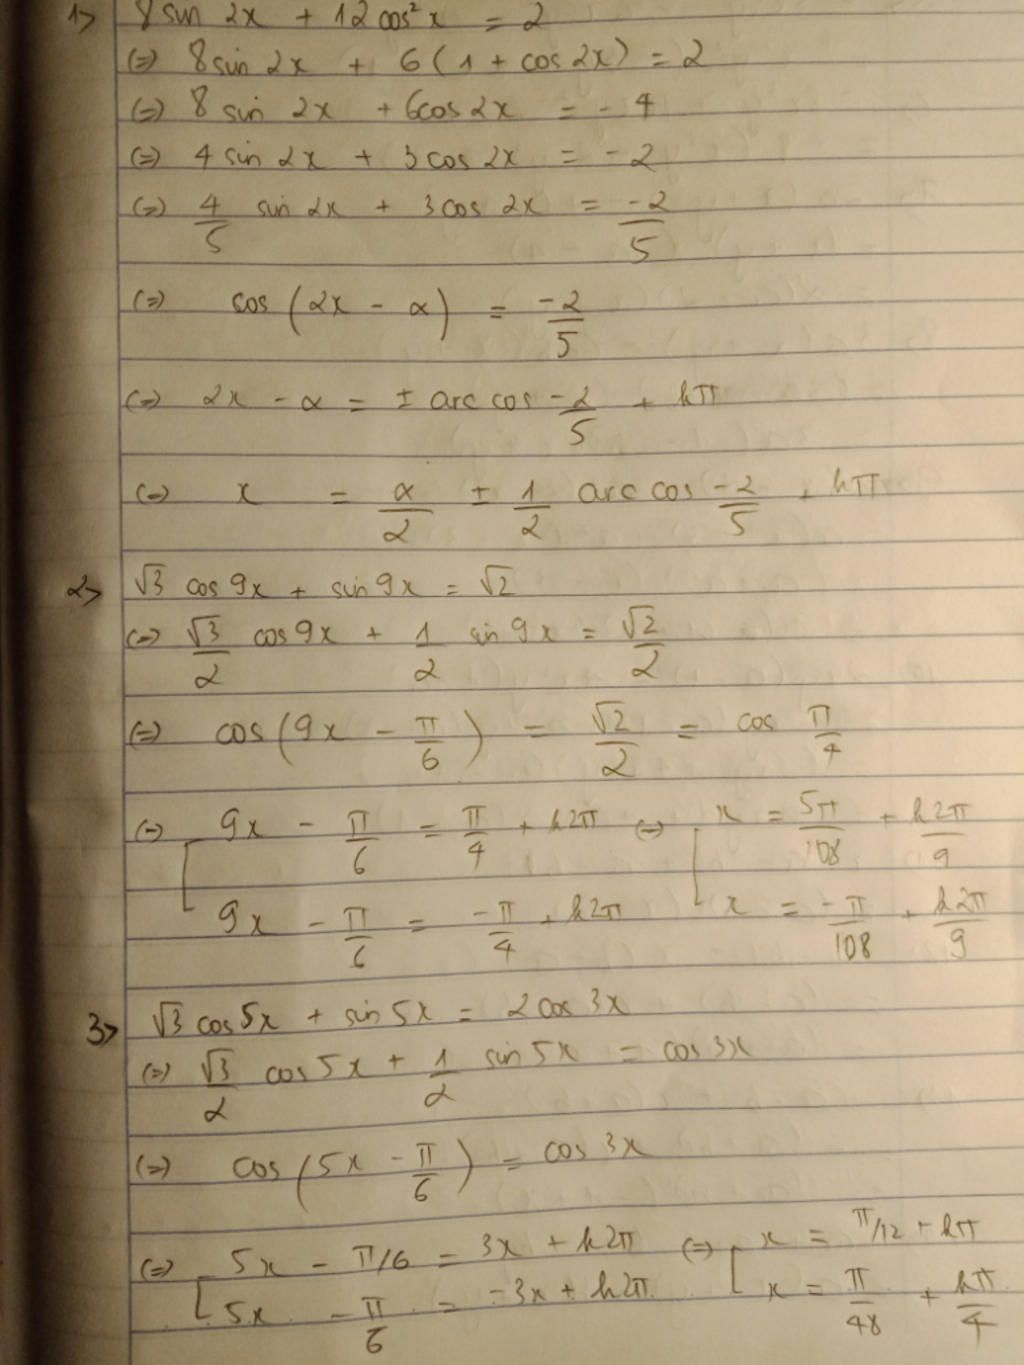 1> 8 sin 2x + 12 cos² x = 2
(=) 8 sin 2x + 6 (1 + cos 2x) = 2
(=) 8 sin 2x + 6cos 2x = - 4
(=) 4 sin 2x + 3 cos 2x = - 2
(=) 4/5 sin 2x + 3 cos 2x = -2/5
(=) cos (2x - α) = -2/5
(=) 2x - α = ± arc cos -2/5 + kπ
(=) x = α/2 ± 1/2 arc cos -2/5 + kπ
2> √3 cos 9x + sin 9x = √2
(=) √3/2 cos 9x + 1/2 sin 9x = √2/2
(=) cos (9x - π/6) = √2/2 = cos π/4
(=) [ 9x - π/6 = π/4 + k2π (=) [ x = 5π/108 + k2π/9
9x - π/6 = -π/4 + k2π x = -π/108 + k2π/9
3> √3 cos 5x + sin 5x = 2 cos 3x
(=) √3/2 cos 5x + 1/2 sin 5x = cos 3x
(=) cos (5x - π/6) = cos 3x
(=) [ 5x - π/6 = 3x + k2π (=) [ x = π/12 + kπ
5x - π/6 = -3x + k2π x = π/48 + kπ/4